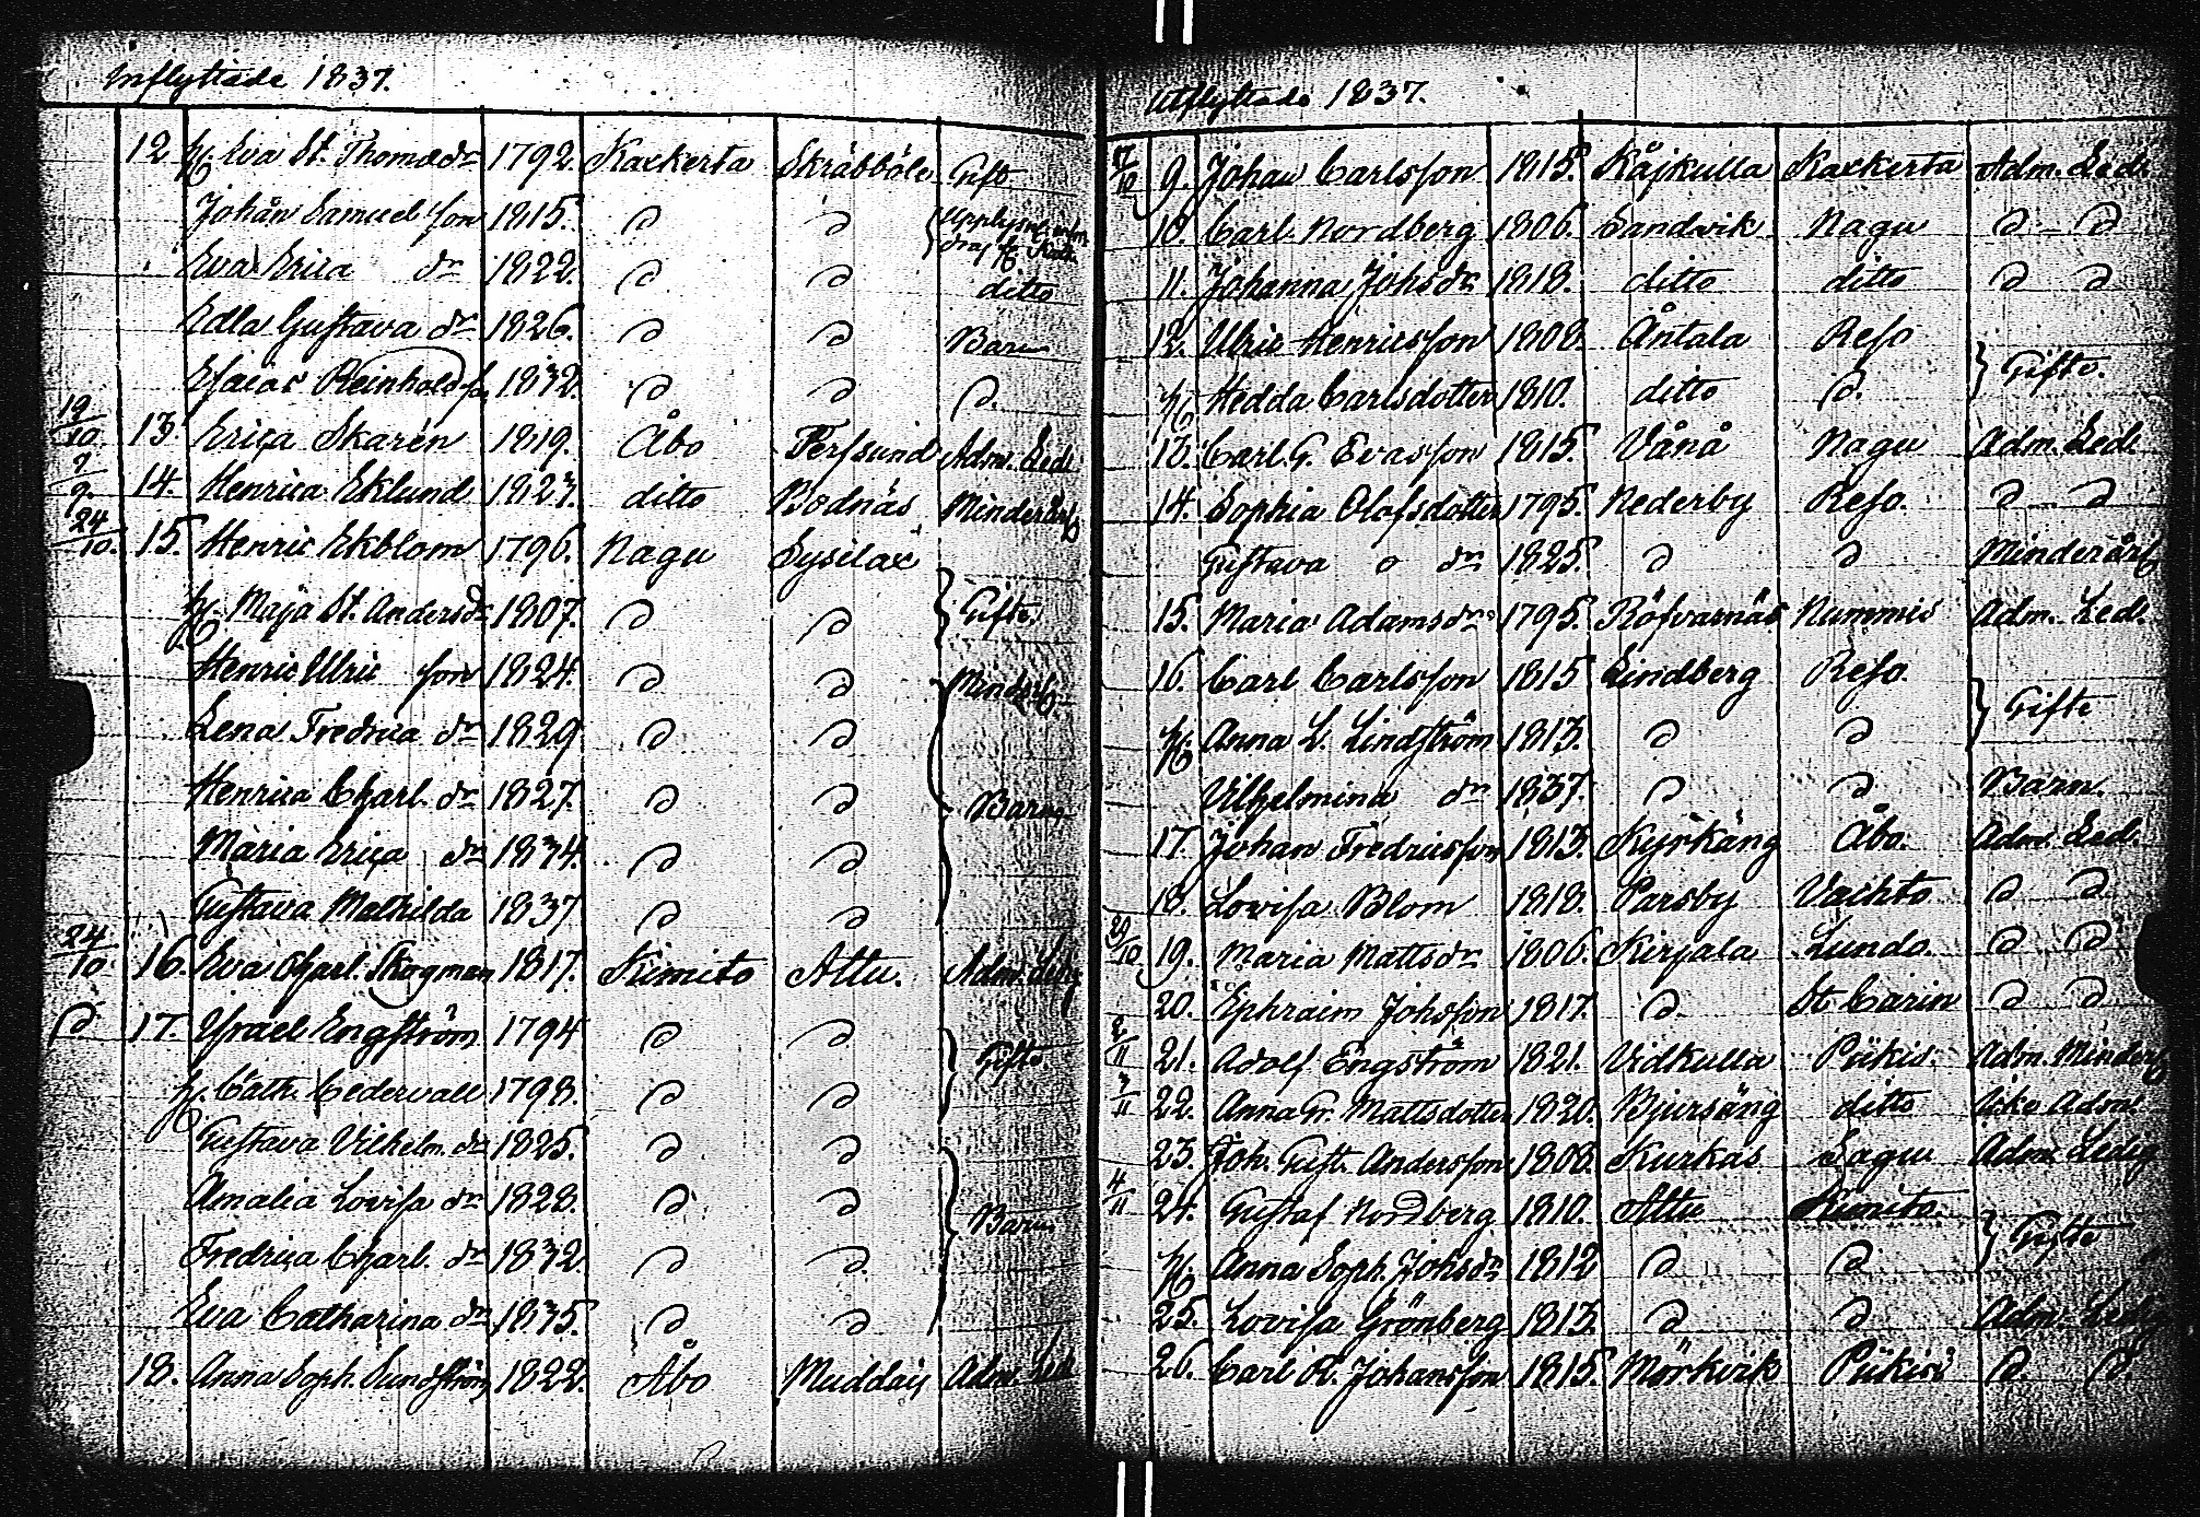 Inflyttade 1837.
12 h. Eva St. Thomædr 1792. Kackerta Skräbböle Gift
Johan Samuel son 1815. d d
Eva Erica dr 1822. d d ditto
Edla Gustava dr 1826. d d Barn
Esaias Reinhold s. 1832. d d d.
19/10 13. Erica Skarén 1819. Åbo Fersund Adm. Led.
9. 14. Henrica Eklund 1823. ditto Bodnäs Minderårig
24/10. 15. Henric Ekblom 1796. Nagu Sysilax
h. Maja St. Andersdr 1807. d d Gifte.
Henric Ulric son 1824. d d
Lena Fredrica dr 1829 d d
Henrica Charl. dr 1827. d d Barn
Maria Erica dr 1834. d d
Gustava Mathilda 1837 d d
24/10. 16. Eva Charl. Skogman 1817. Kimito Attu. Adm. Ledig
d. 17. Israel Engström 1794 d d Gifte.
h. Cath. Cedervall 1798. d d
Gustava Vilhelm. dr 1825. d d
Amalia Lovisa dr 1828. d d Barn
Fredrica Charl. dr 1832. d d
Eva Catharina dr 1835. d d
18. Anna Soph. Sundström 1822. Åbo Muddais Adm. Led.
Utflyttade 1837.
17/10 9. Johan Carlsson 1815. Råjkulla Kackerta Adm. Led.
10. Carl Nordberg 1806. Sandvik Nagu d - d
11. Johanna Johsdr 1818. ditto ditto d d
12. Ulric Henricsson 1808. Åntala Reso Gifte.
h. Hedda Carlsdotter 1810. ditto d.
13. Carl G. Evasson 1815. Vånå Nagu Adm. Led.
14. Sophia Olofsdotter 1795. Nederby Reso. d - d
Gustava o dr 1825. d d Minderårig
15. Maria Adamsdr 1795. Röfvarnäs Nummis Adm. Led.
16. Carl Carlsson 1815 Lindberg Reso. Gifte
h. Anna L. Lindström 1813. d d
Vilhelmina dr 1837. d d Barn.
17. Johan Fredricsson 1813. Kyrkäng Åbo. Adm. Led.
18. Lovisa Blom 1818. Parsby Vachto d d
29/10 19. Maria Mattsdr 1806. Kirjala Lundo. d d
20. Ephraim Johsson 1817. d. St Carin d d
2/11 21. Adolf Engström 1821. Vidkulla Piikis. Adm. Minderå
3/11 22. Anna Gr. Mattsdotter 1820. Bjursäng ditto Icke Adm.
23. Joh. Gust. Andersson 1808. Kurkas Sagu Adm. Ledig
4/11 24. Gustaf Nordberg 1810. Attu Kimito. Gifte
h. Anna Soph. Johsdr 1812 d d
25. Lovisa Grönberg 1813. d d Adm. Ledig
26. Carl R. Johansson 1815. Mörkvik Piikis d. d.